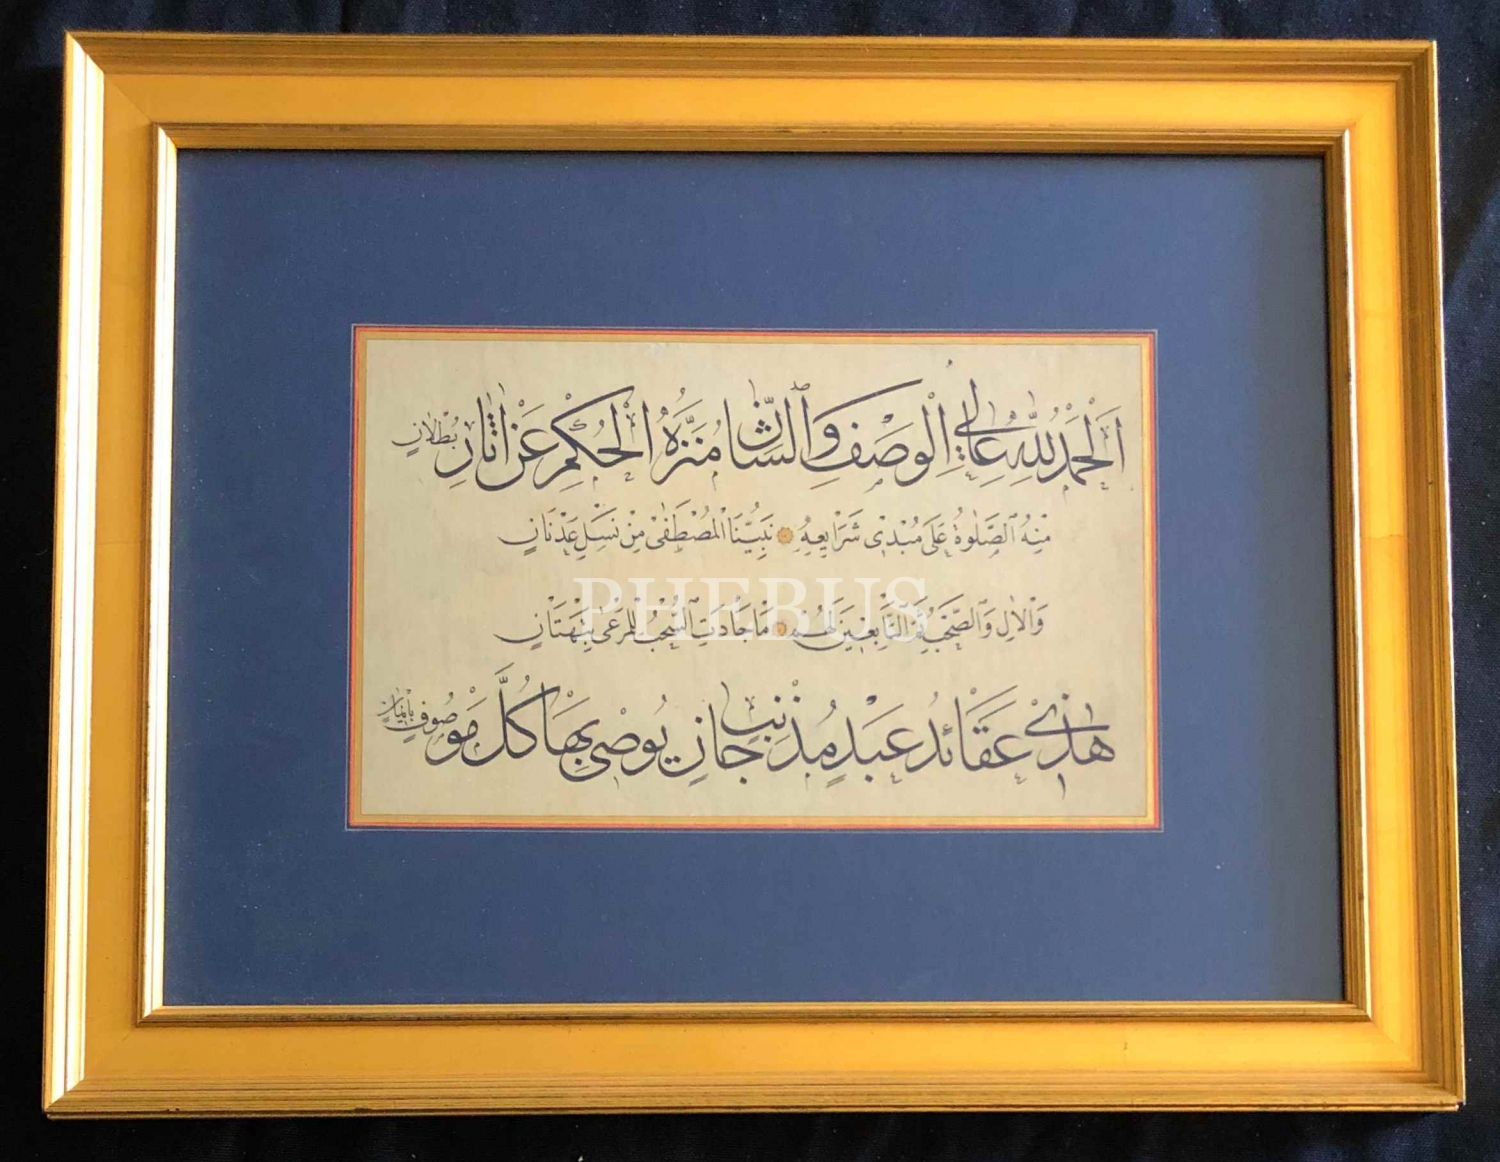 اَلْحَمْدُ لِلّٰهِ عَالِي الْوَصْفِ وَالشَّانِ مُنَزَّهُ الْحُكْمِ عَنْ اٰثَارِ بُطْلَانٍ
مِنْهُ الصَّلٰوةُ عَلٰى مُبْدِى شَرَايِعِهِ نَبِيُّنَا الْمُصْطَفٰى مِنْ نَسْلِ عَدْنَانٍ
وَالْاٰلِ وَالصَّحْبِ ثُمَّ التَّابِعِينَ لَهُمْ مَا جَادَتِ السُّحْبُ لِلْمَرْعٰى بِتَهْتَانٍ
PHEBUS
هٰذِى عَقَائِدُ عَبْدٍ مُذْنِبٍ جَانٍ يُوصٰى بِهَا كُلُّ مَوْصُوفٍ بِاِيمَانٍ